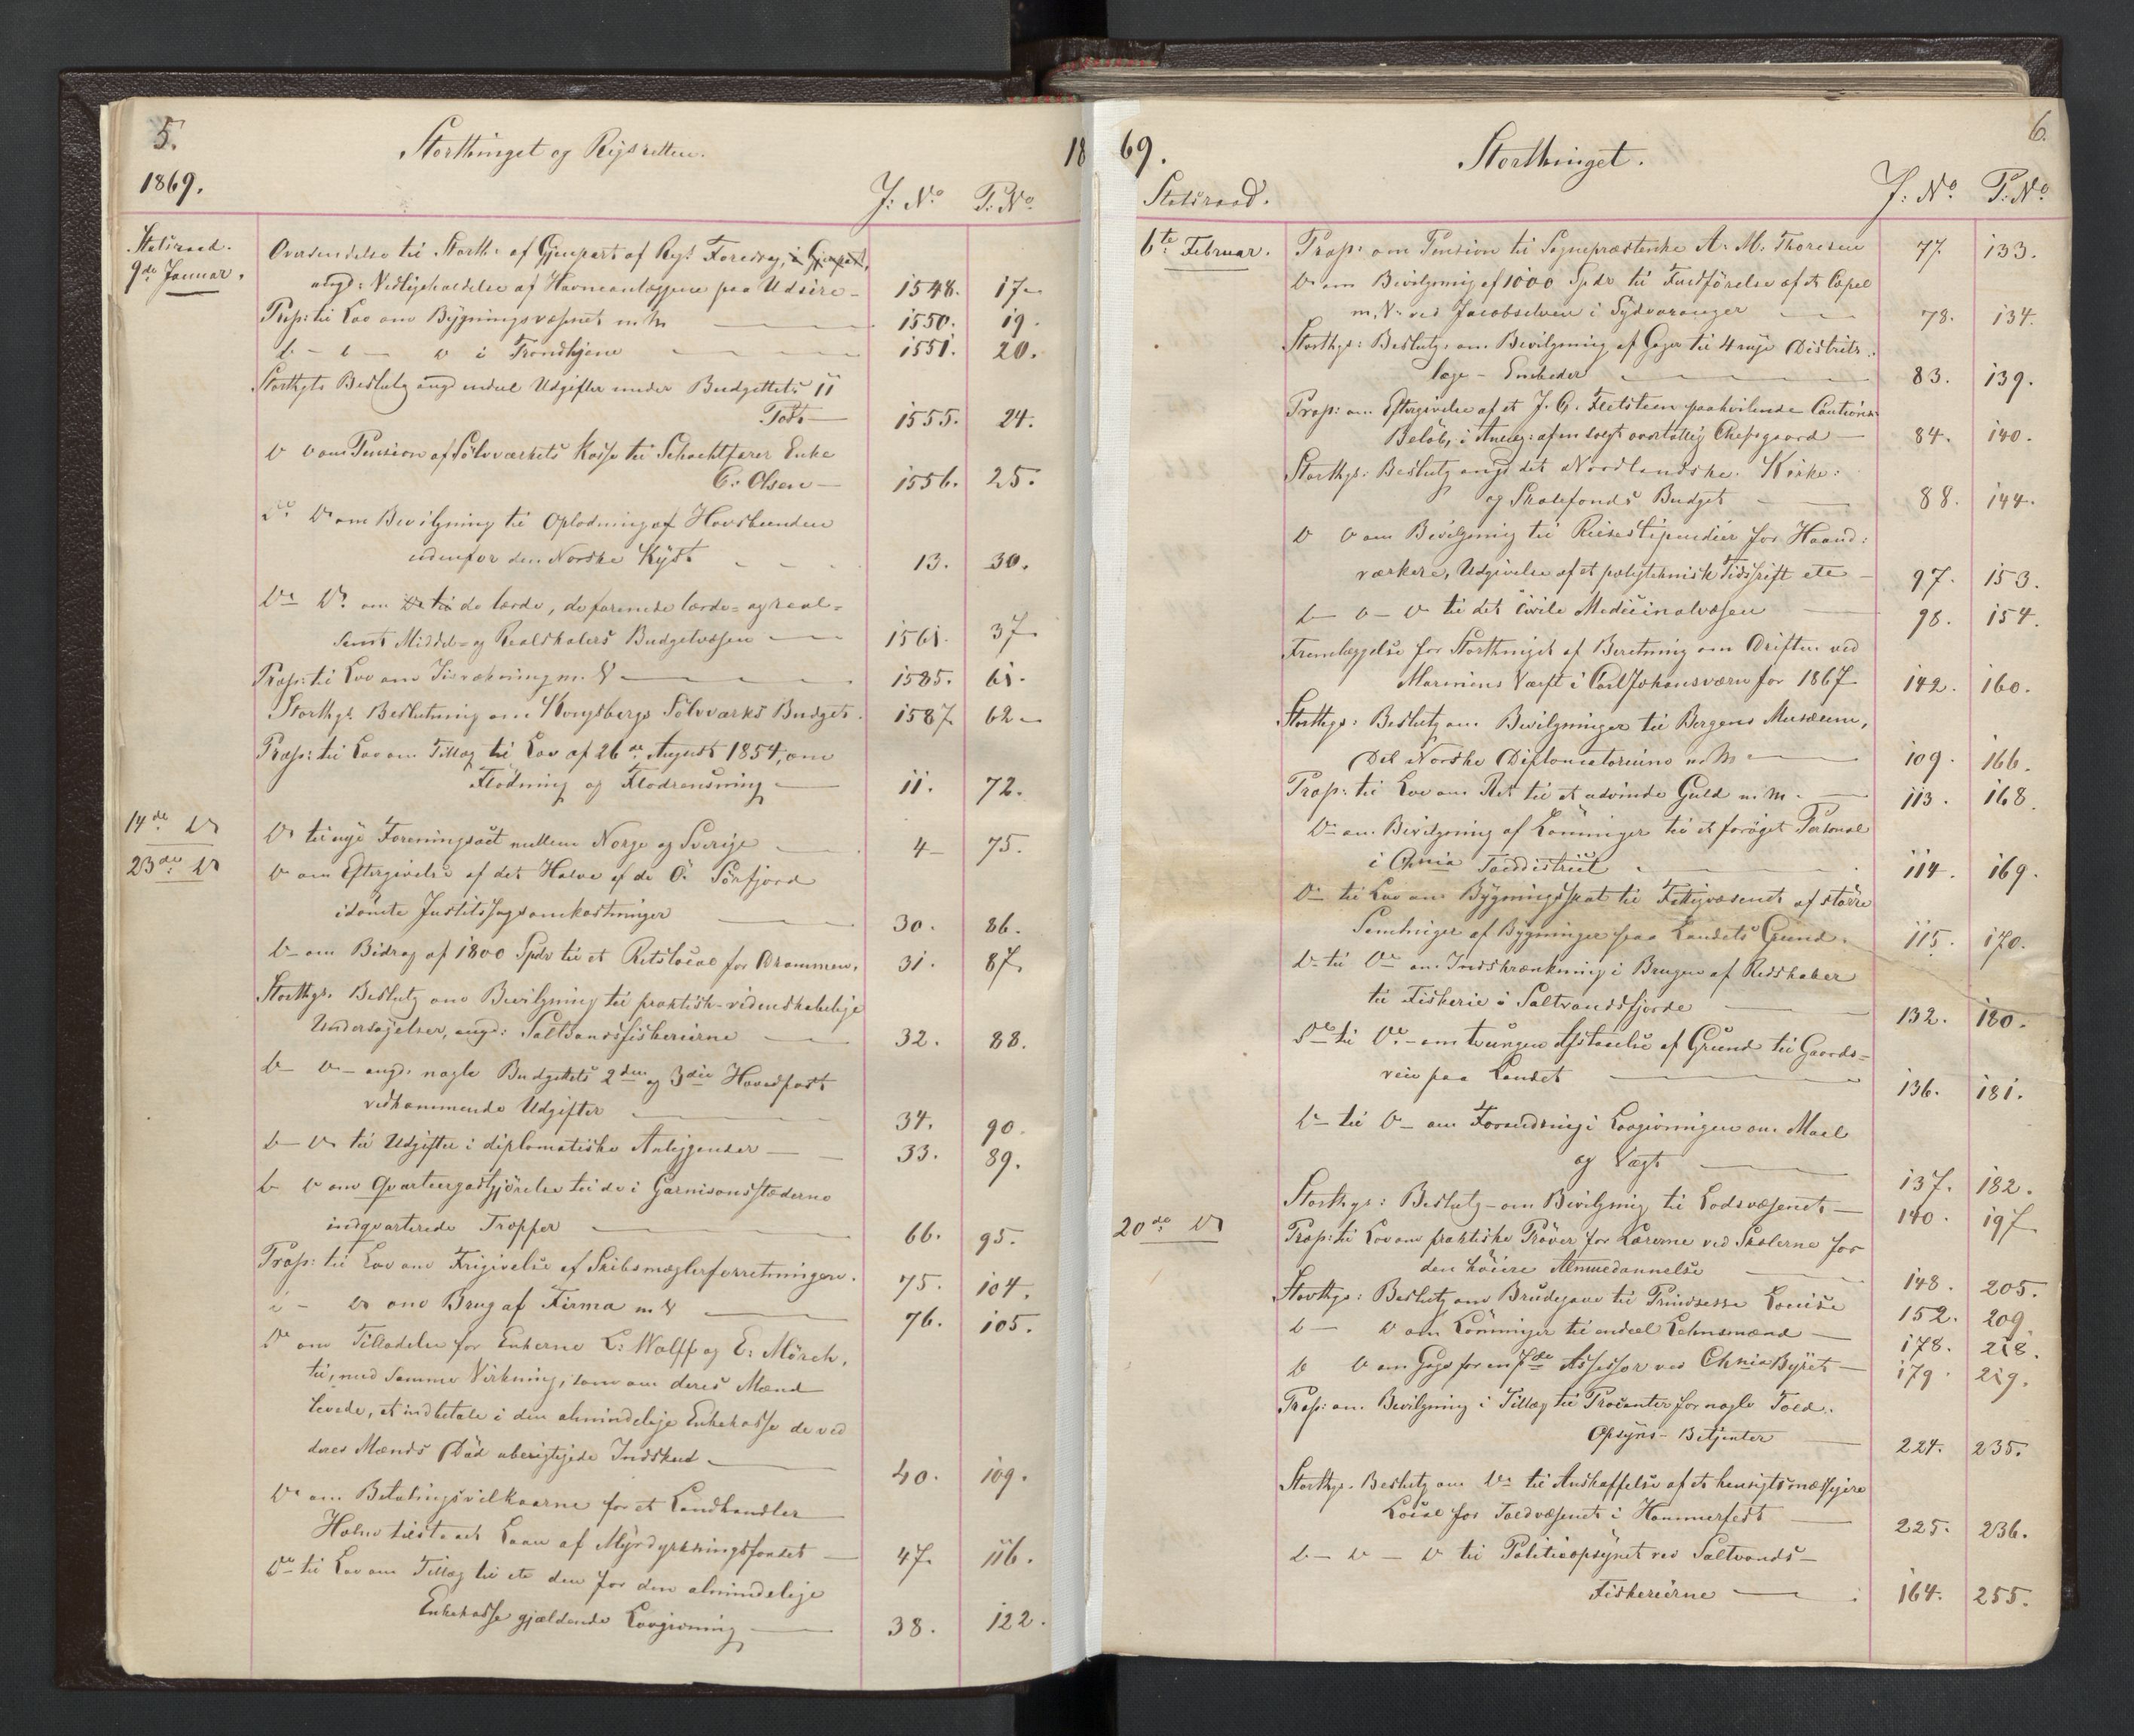 5.
Storthinget og Rigsretten.
18
1869.
J: No. P: No.
Statsraad.
9de Januar.
Oversendelse til Storth: af Gjenpart af Rgs Foredrag, i Gjenpart,
angd: Vedligeholdelse af Havneanlæggene paa Udsire - 1548. 17
Prop: til Lov om Bygningsvæsenet m. M 1550. 19.
D - D - D i Trondhjem 1551. 20.
Storthgts Beslutg angd endeel Udgifter under Budgettets 11
Post 1555. 24.
D D om Pension af Sølvværkets Kasse til Schachtfører Enke
C. Olsen 1556. 25.
Do Do om Bevilgning til Oplodning af Havbunden
udenfor den Norske Kyst. 13. 30.
Do Do om de lærde, de forenede lærde- og real-
samt Middel- og Realskolers Budgetvæsen 1561. 37
Prop: til Lov om 1585. 61.
Storthgs Beslutning om Kongsbergs Sølvværks Budget. 1587 62
Prop: til Lov om Tillæg til Lov af 26de August 1854, om
Flødning og Flodrensning 11. 72.
14de D
Do til nye Foreningsact mellem Norge og Sverige 4 75.
23de D
D om Eftergivelse af det Halve af de O. Sörfjord
idömte Justitssagsomkostninger 30. 86.
D om Bidrag af 1800 Spdr til et Retslocal for Drammen. 31. 87
Storthgs. Beslutg om Bevilgning til praktisk-videnskabelige
Undersøgelser, angd: Saltvandsfiskerierne 32. 88.
D - D - angd. nogle Budgettets 2den og 3die Hovedpost
vedkommende Udgifter 34. 90.
D - D til Udgifter i diplomatiske Anliggender 33. 89.
D D om Qvarteergodtgjörelse til de i Garnisonsstæderne
indqvarterede Tropper 66. 95.
Prop: til Lov om Frigivelse af Skibsmæglerforretningen. 75. 104.
D om Brug af Firma m V 76. 105.
Do om Tilladelse for Enkerne L: Wolff og E: Mörch,
til, med samme Virkning, som om deres Mænd
levede, at indbetale i den almindelige Enkekasse de ved
deres Mænds Död uberigtigede Indskud 40. 109.
Do om Betalingsvilkaarne for et Landhandler
Holm tilstaaet Laan af Myrdyrkningsfondet 47. 116.
Do til Lov om Tillæg til etc den for den almindelige
Enkekasse gjældende Lovgivning 38. 122.
69.
6.
Storthinget.
Statsraad.
J: No. P: No.
6te Februar.
Prop: om Pension til Sognepræstenke A. M. Thoresen 77. 133.
D om Bevilgning af 1000 Spdr til Fuldförelse af et Capel
m. V. ved Jacobselven i Sydvaranger 78. 134.
Storthgs: Beslutg. om Bevilgning af Gager til 4 nye Distrikts
læge-Embeder 83. 139.
Prop: om Eftergivelse af et J. C. Fletsteen paahvilende Cautions
Beløb, i Anleg: af en solgt overtallig Chefsgaard 84. 140.
Storthgs: Beslutg angd det Nordlandske Kirke:
og Skolefonds Budget 88. 144.
D D om Bevilgnig til Reisestipendier for Haand:
værkere, Udgivelse af et polyteknisk Tidsskrift etc 97. 153.
D D - D til det Civile Medicinalvæsen 98. 154.
Fremlæggelse for Storthinget af Beretning om Driften ved
Marinens Værft i Carljohansværn for 1867 142. 160.
Storthgs: Beslutg om Bevilgninger til Bergens Musæum,
Det Norske Diplomatorium m. M 109. 166.
Prop: til Lov om Ret til at udvinde Guld m. M. 113. 168.
Do om Bevilgning af Lönninger til et forøget Personal
i Chnia Tolddistrict 114. 169.
Do til Lov om Bygningsskat til Fattigvæsenet af større
Samlinger af Bygninger paa Landets Grund. 115. 170.
Do til Do om Indskrænkning i Brugen af Redskaber
til Fiskerie i Saltvandsfjorde 132. 180.
Do til Do om tvungen Afstaaelse af Grund til Gaards-
veie paa Landet 136. 181.
Do til D om Forandring i Lovgivningen om Maal
og Vægt 137. 182.
Storthgs: Beslutg om Bevilgnig til Lodsvæsenet 140. 197
20de D
Prop: til Lov om praktiske Pröver for Lærerne ved Skolerne for
den höiere Almuedannelse 148. 205.
Storthgs: Beslutg om Brudegave til Prindsesse Louise 152. 209
D - D om Lönninger til endeel Lehnsmænd 178. 218.
D D om Gage for en 7de Assessor ved Chnia Byret 179. 219.
Prop: om Bevilgning i Tillæg til Procenter for nogle Told.
Opsyns-Betjenter 224. 235.
Storthgs. Beslutg om Do til Anskaffelse af et hensigtsmæssigere
Local for Toldvæsenet i Hammerfest 225. 236.
D - D - D til Politieopsynet ved Saltvands-
Fiskerierne 164. 255.